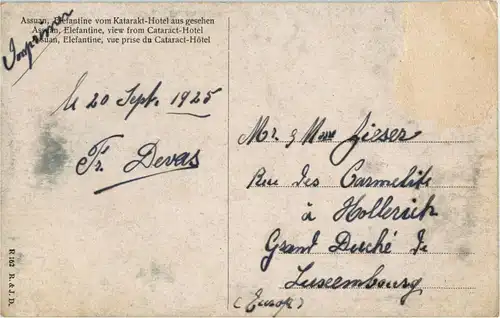 Assuan, Elefantine vom Katarakt-Hotel aus gesehen
Assuan, Elefantine, view from Cataract-Hotel
Assuan, Elefantine, vue prise du Cataract-Hôtel
Imprimé
le 20 Sept. 1925
Fr. Devas
Mr. & Mme Zieser
Rue des Carmelite
à Hollerich
Grand Duché de
Luxembourg
(Europe)
E 162 R. & J. D.